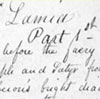 Lamia
Part 1st
before the faery
ple and Satyr from
cious bright diad